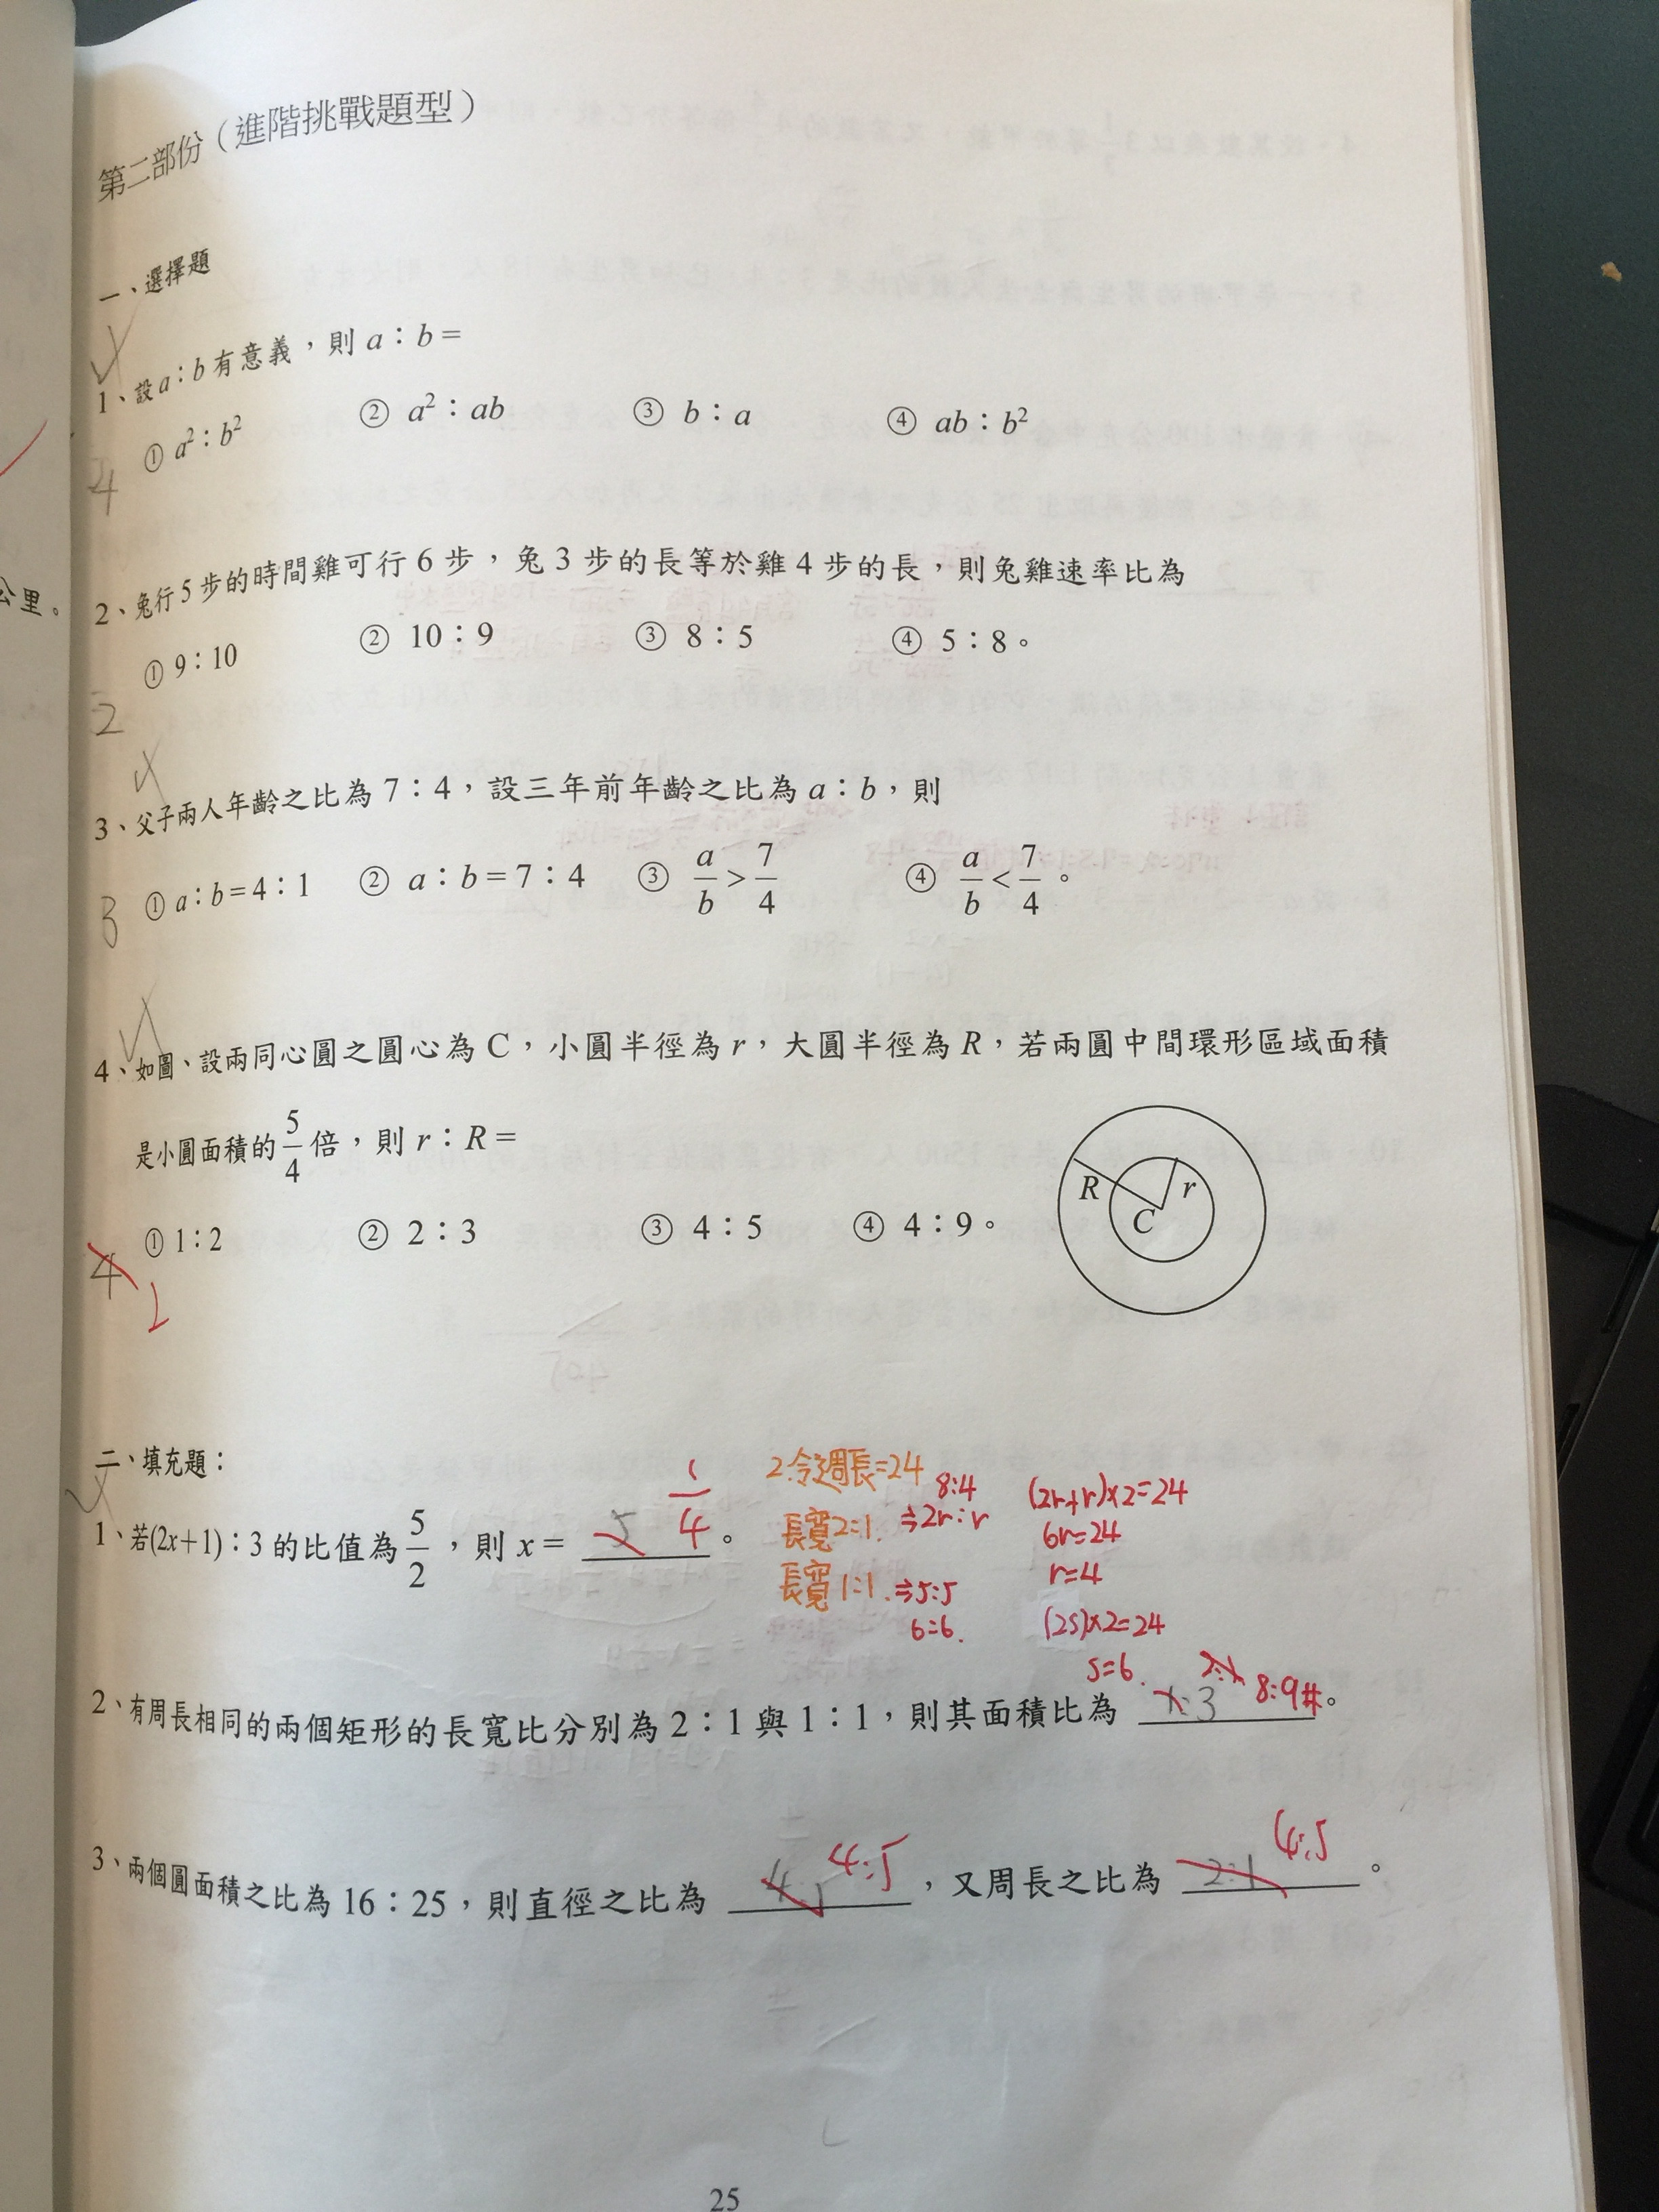 第二部份（進階挑戰題型）
一、選擇題
1、設a：b有意義，則 a：b＝
① a²：b² ② a²：ab ③ b：a ④ ab：b²
4
2、兔行5步的時間雞可行6步，兔3步的長等於雞4步的長，則兔雞速率比為
① 9：10 ② 10：9 ③ 8：5 ④ 5：8。
2
3、父子兩人年齡之比為7：4，設三年前年齡之比為a：b，則
① a：b＝4：1 ② a：b＝7：4 ③ a/b > 7/4 ④ a/b < 7/4。
3
4、如圖、設兩同心圓之圓心為C，小圓半徑為r，大圓半徑為R，若兩圓中間環形區域面積
是小圓面積的5/4倍，則 r：R＝
① 1：2 ② 2：3 ③ 4：5 ④ 4：9。
R r
C
4
2
二、填充題：
2.令週長=24 8:4 (2r+r)×2=24
長寬2:1. ⇒2r:r 6r=24
r=4
長寬1:1. ⇒s:s (2s)×2=24
6:6. s=6.
1、若(2x＋1)：3的比值為5/2，則 x＝ 5 1/4。
2:1
2、有周長相同的兩個矩形的長寬比分別為2：1與1：1，則其面積比為 3 8:9#。
3、兩個圓面積之比為16：25，則直徑之比為 4:5，又周長之比為 2:1 4:5。
25
公里。